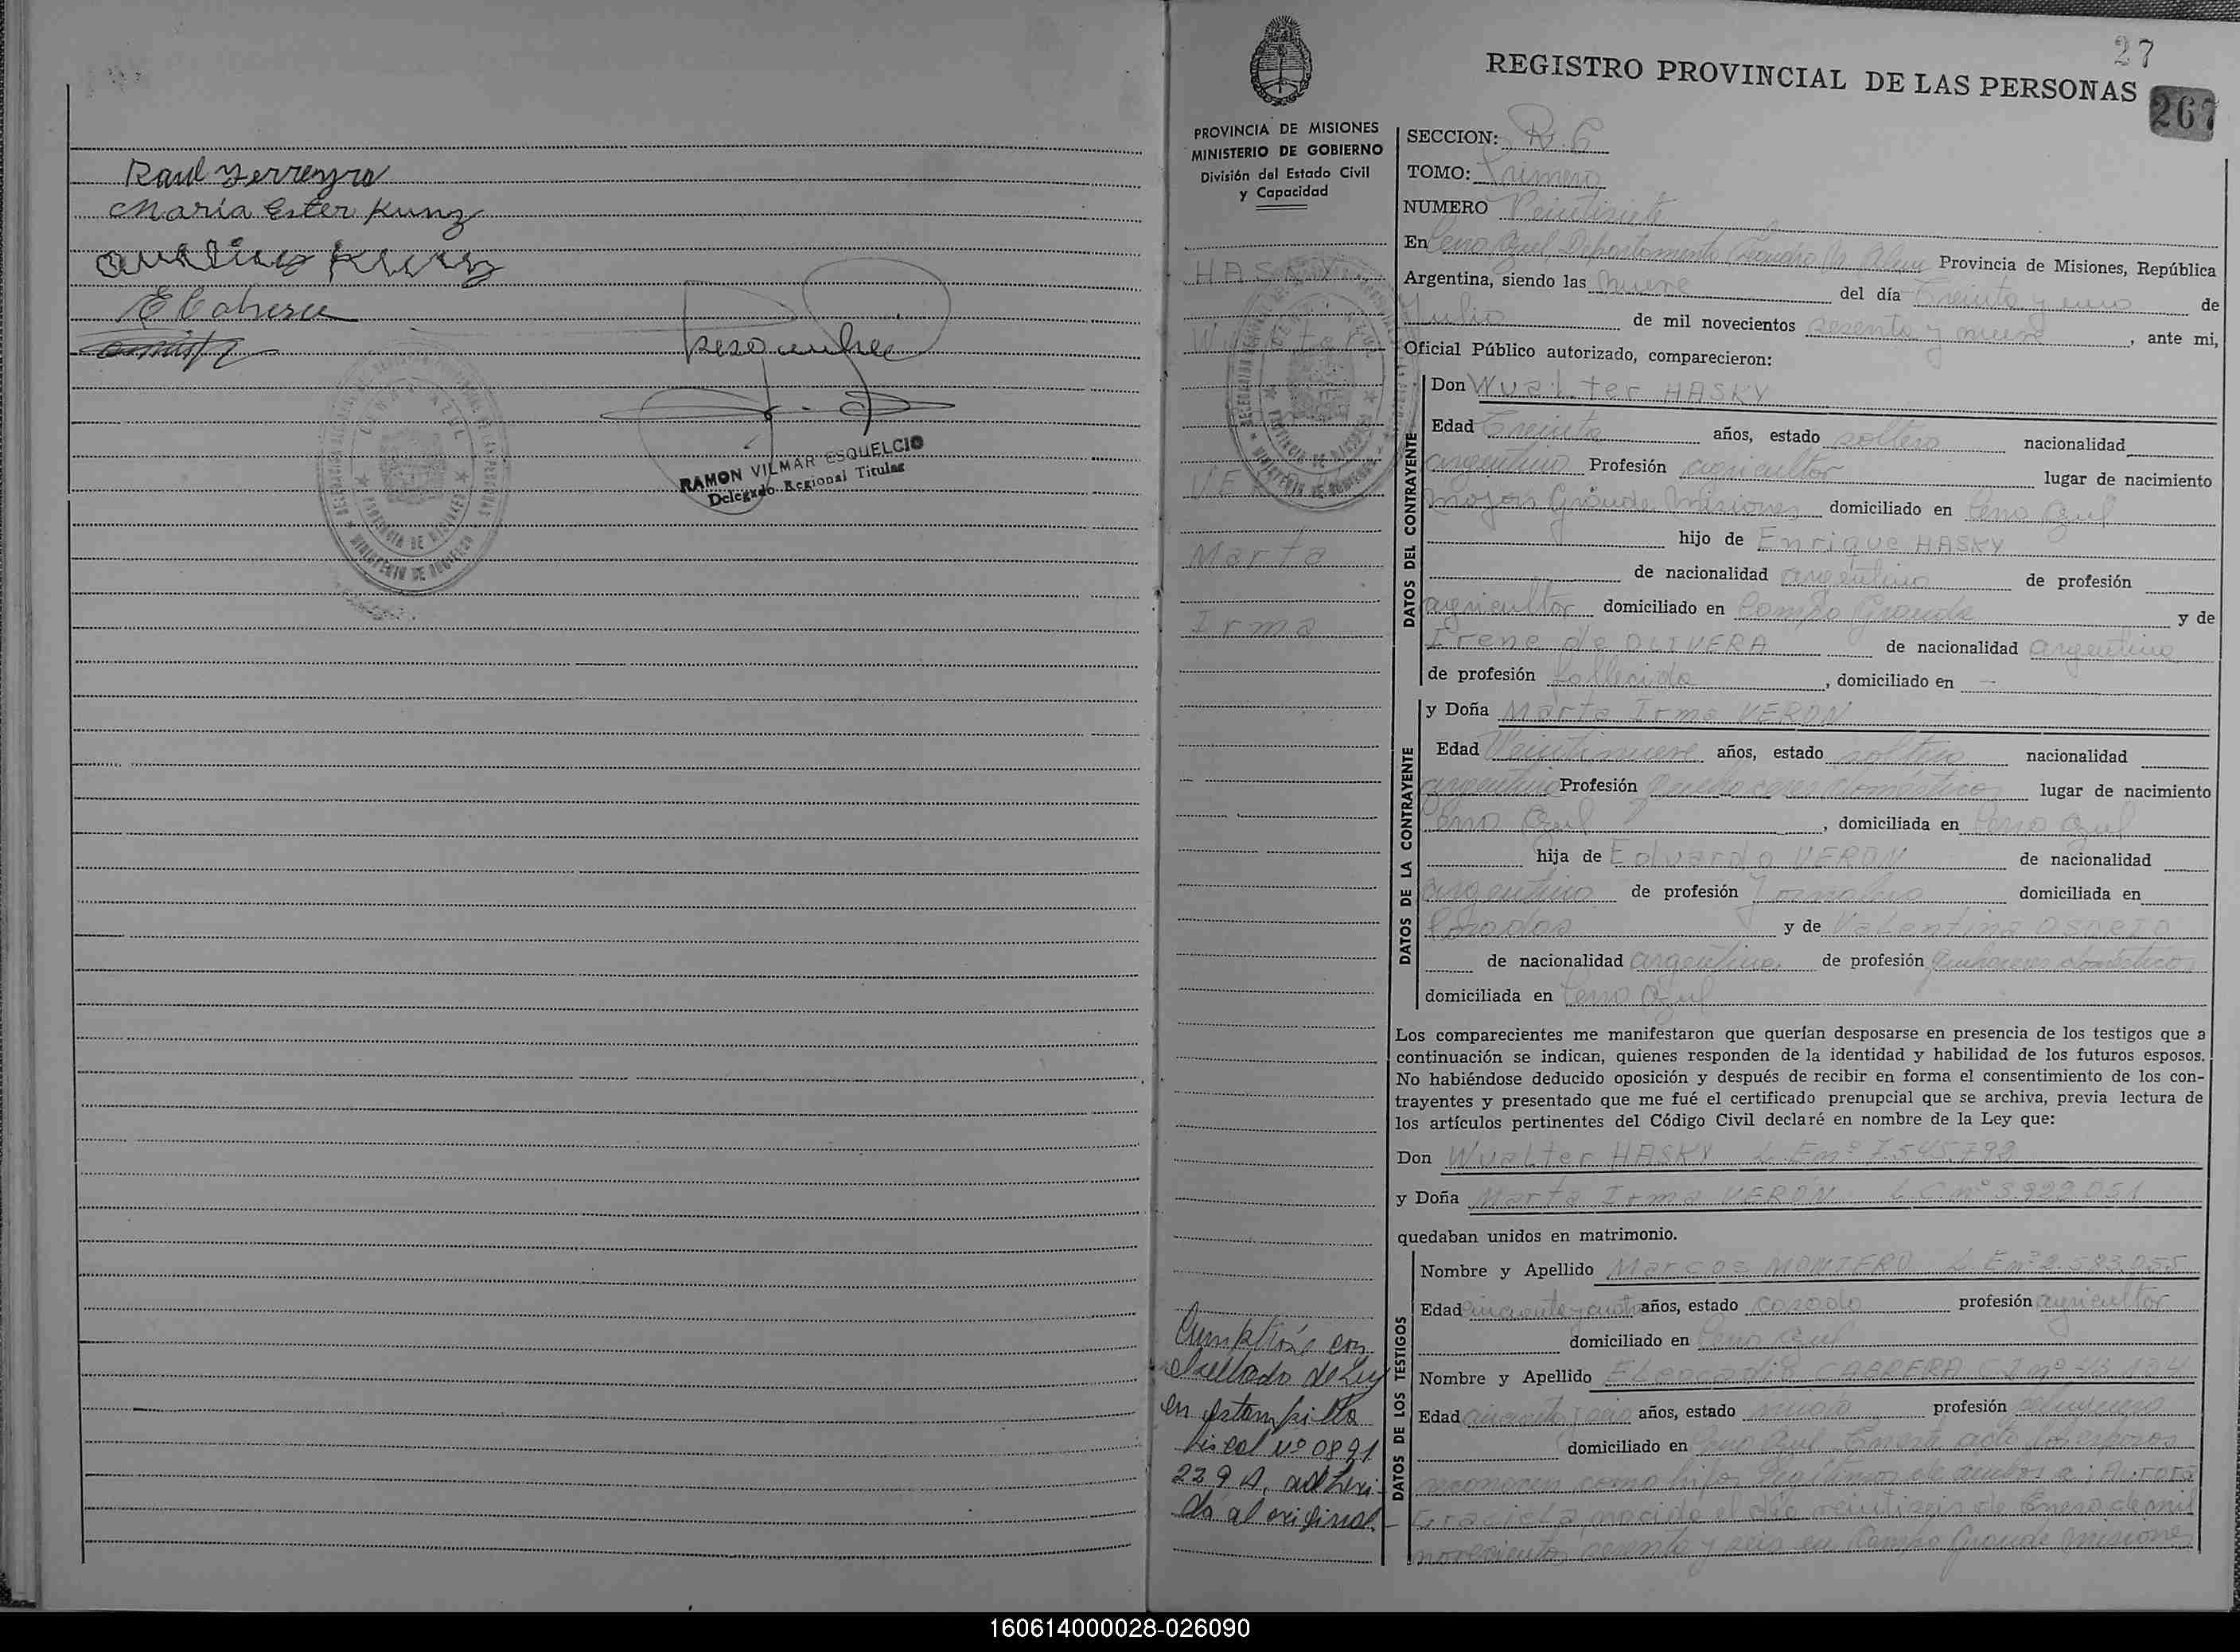 Raul Ferreyra
Maria Ester Kunz
E Cabrera
RAMON VILMAR ESQUELCIO
Delegado Regional Titular
27
REGISTRO PROVINCIAL DE LAS PERSONAS
267
PROVINCIA DE MISIONES
MINISTERIO DE GOBIERNO
División del Estado Civil
y Capacidad
HASKY
Wualter
VERON
Marta
Irma
Cumplióse con
sellado de Ley
en estampilla
fiscal nº 0891
229 A, adheri-
da al original.
SECCION:
TOMO: Primero
NUMERO Veintisiete
En Cerro Azul Departamento Leandro N. Alem Provincia de Misiones, República
Argentina, siendo las nueve del día treinta y uno de
Julio de mil novecientos sesenta y nueve, ante mi,
Oficial Público autorizado, comparecieron:
DATOS DEL CONTRAYENTE
Don Wualter HASKY
Edad Treinta años, estado soltero nacionalidad
argentino Profesión agricultor lugar de nacimiento
Mojon Grande Misiones domiciliado en Cerro Azul
hijo de Enrique HASKY
de nacionalidad argentino de profesión
agricultor domiciliado en Campo Grande y de
Irene de OLIVERA de nacionalidad argentina
de profesión fallecida, domiciliado en -
DATOS DE LA CONTRAYENTE
y Doña Marta Irma VERON
Edad Veintinueve años, estado soltera nacionalidad
argentina Profesión quehaceres domésticos lugar de nacimiento
Cerro Azul, domiciliada en Cerro Azul
hija de Eduardo VERON de nacionalidad
argentino de profesión Jornalero domiciliada en
Posadas y de Valentina OSORIO
de nacionalidad argentina de profesión quehaceres domésticos
domiciliada en Cerro Azul
Los comparecientes me manifestaron que querían desposarse en presencia de los testigos que a
continuación se indican, quienes responden de la identidad y habilidad de los futuros esposos.
No habiéndose deducido oposición y después de recibir en forma el consentimiento de los con-
trayentes y presentado que me fué el certificado prenupcial que se archiva, previa lectura de
los artículos pertinentes del Código Civil declaré en nombre de la Ley que:
Don Wualter HASKY L.E nº 7.545.792
y Doña Marta Irma VERÓN L.C. nº 3.922.051
quedaban unidos en matrimonio.
DATOS DE LOS TESTIGOS
Nombre y Apellido Marcos MONTERO L.E nº 2.583.055
Edad cincuenta y cuatro años, estado casado profesión agricultor
domiciliado en Cerro Azul
Nombre y Apellido Eleocadia CABRERA C I nº
Edad años, estado viuda profesión
domiciliado en Cerro Azul En este acto los esposos
reconocen como hijos legítimos de ambos a: Aurora
Graciela, nacida el día veintiseis de Enero de mil
novecientos sesenta y seis en Campo Grande Misiones
160614000028-026090